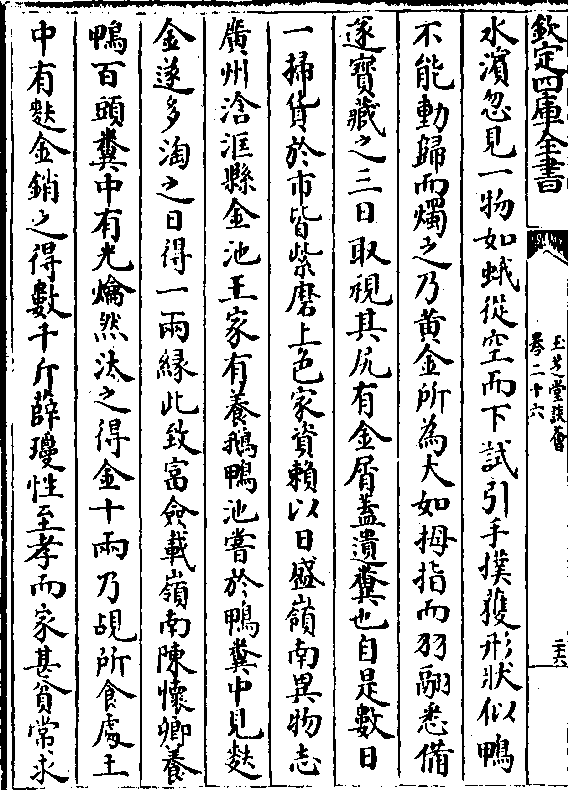 欽定四庫全書
玉芝堂談薈
卷二十六
二十六
水濵忽見一物如蛾從空而下試引手撲獲形狀似鴨
不能動歸而燭之乃黄金所為大如拇指而羽翮悉備
遂寳藏之三日取視其尻有金屑葢遺糞也自是數日
一掃貨於市皆紫磨上色家資賴以日盛嶺南異物志
廣州浛洭縣金池王家有養鵝鴨池嘗於鴨糞中見麩
金遂多淘之日得一兩緣此致富僉載嶺南陳懷卿養
鴨百頭糞中有光爚然汰之得金十兩乃覘所食處土
中有麩金銷之得數千斤薛瓊性至孝而家甚貧常求